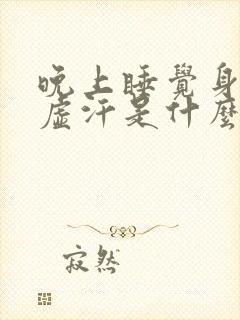 晚上睡覺身
虛汗是什麼
寂然